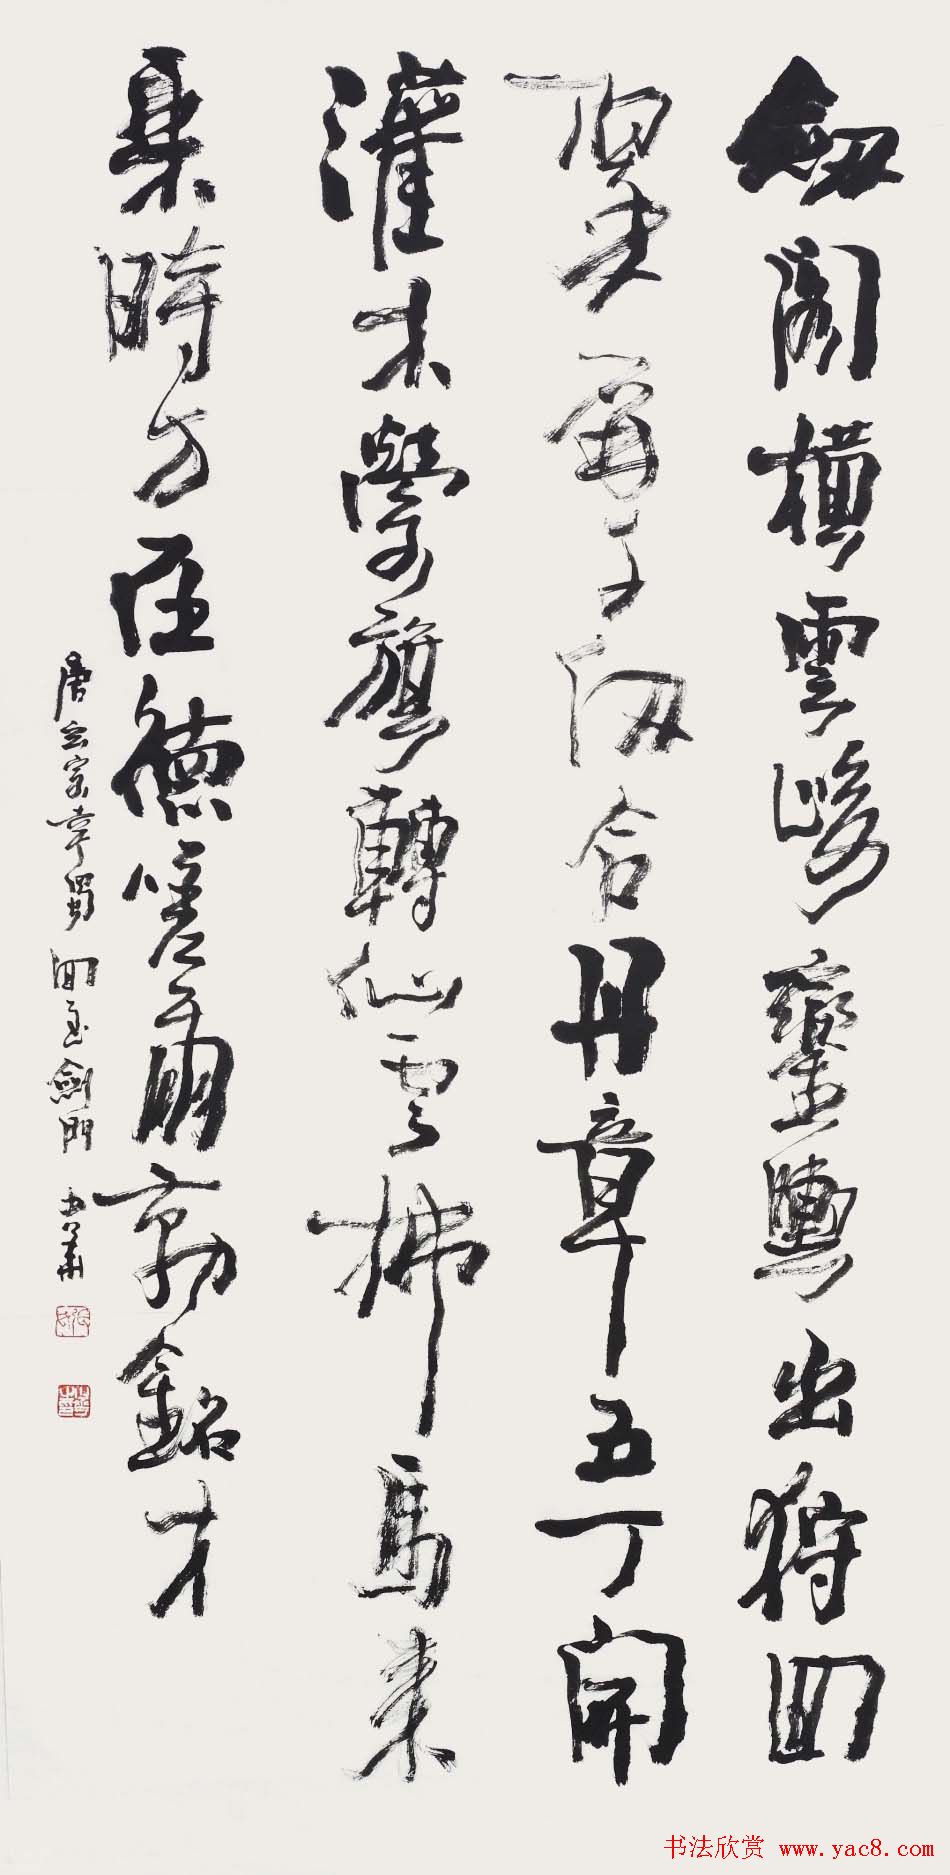 劍閣橫雲峻鑾輿出狩回
翠屏千仞合丹章五丁開
灌木縈旗轉仙雲拂馬來
乘時方在德嗟爾勒銘才
唐玄宗幸蜀回至劍門
书法欣赏 www.yac8.com